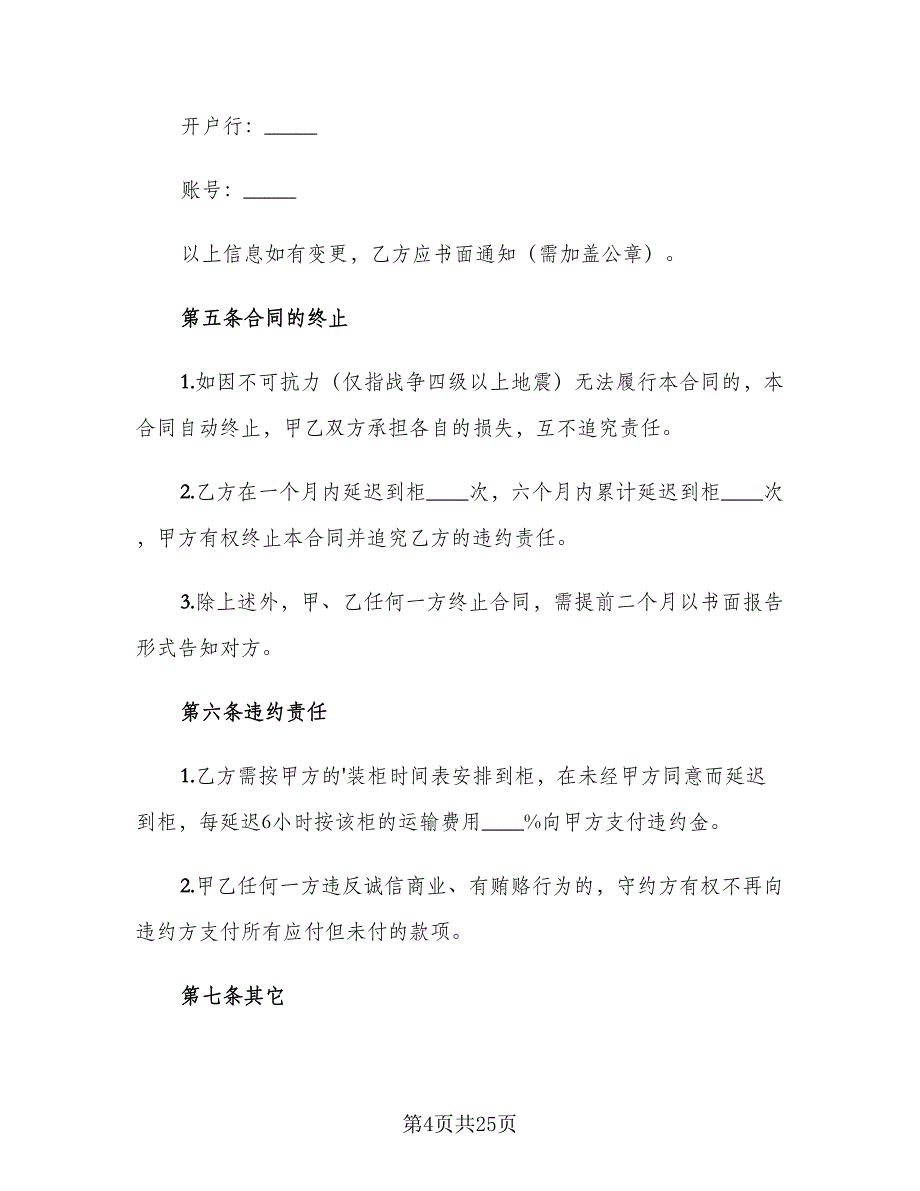 开户行：_____
账号：_____
以上信息如有变更，乙方应书面通知（需加盖公章）。
第五条合同的终止
1.如因不可抗力（仅指战争四级以上地震）无法履行本合同的，本
合同自动终止，甲乙双方承担各自的损失，互不追究责任。
2.乙方在一个月内延迟到柜____次，六个月内累计延迟到柜____次
，甲方有权终止本合同并追究乙方的违约责任。
3.除上述外，甲、乙任何一方终止合同，需提前二个月以书面报告
形式告知对方。
第六条违约责任
1.乙方需按甲方的'装柜时间表安排到柜，在未经甲方同意而延迟
到柜，每延迟6小时按该柜的运输费用____%向甲方支付违约金。
2.甲乙任何一方违反诚信商业、有贿赂行为的，守约方有权不再向
违约方支付所有应付但未付的款项。
第七条其它
第4页共25页